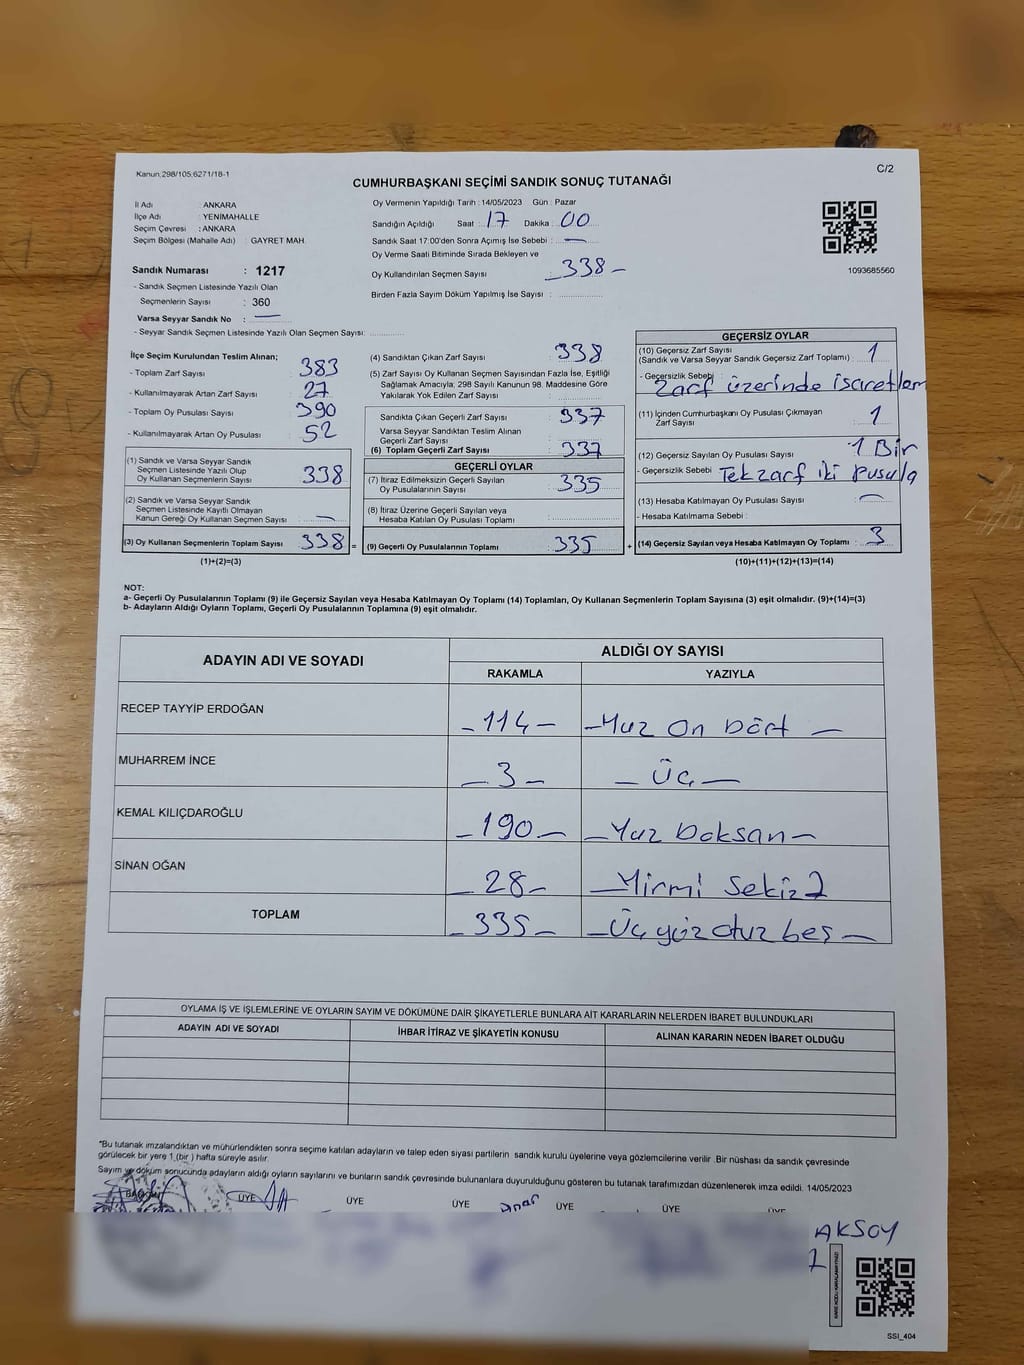 Kanun;298/105;6271/18-1
C/2
CUMHURBAŞKANI SEÇİMİ SANDIK SONUÇ TUTANAĞI
İl Adı : ANKARA
İlçe Adı : YENİMAHALLE
Seçim Çevresi : ANKARA
Seçim Bölgesi (Mahalle Adı) : GAYRET MAH.
Sandık Numarası : 1217
- Sandık Seçmen Listesinde Yazılı Olan
Seçmenlerin Sayısı : 360
Varsa Seyyar Sandık No : —
- Seyyar Sandık Seçmen Listesinde Yazılı Olan Seçmen Sayısı: ...............
Oy Vermenin Yapıldığı Tarih : 14/05/2023 Gün : Pazar
Sandığın Açıldığı Saat : 17 Dakika : 00
Sandık Saat 17:00'den Sonra Açımış İse Sebebi : —
Oy Verme Saati Bitiminde Sırada Bekleyen ve
Oy Kullandırılan Seçmen Sayısı : 338 -
Birden Fazla Sayım Döküm Yapılmış İse Sayısı : ...............
1093685560
İlçe Seçim Kurulundan Teslim Alınan;
- Toplam Zarf Sayısı : 383
- Kullanılmayarak Artan Zarf Sayısı : 27
- Toplam Oy Pusulası Sayısı : 390
- Kullanılmayarak Artan Oy Pusulası : 52
(1) Sandık ve Varsa Seyyar Sandık
Seçmen Listesinde Yazılı Olup
Oy Kullanan Seçmenlerin Sayısı : 338
(2) Sandık ve Varsa Seyyar Sandık
Seçmen Listesinde Kayıtlı Olmayan
Kanun Gereği Oy Kullanan Seçmen Sayısı : —
(3) Oy Kullanan Seçmenlerin Toplam Sayısı : 338 =
(1)+(2)=(3)
(4) Sandıktan Çıkan Zarf Sayısı : 338
(5) Zarf Sayısı Oy Kullanan Seçmen Sayısından Fazla İse, Eşitliği
Sağlamak Amacıyla; 298 Sayılı Kanunun 98. Maddesine Göre
Yakılarak Yok Edilen Zarf Sayısı : ...............
Sandıkta Çıkan Geçerli Zarf Sayısı : 337
Varsa Seyyar Sandıktan Teslim Alınan
Geçerli Zarf Sayısı : ...............
(6) Toplam Geçerli Zarf Sayısı : 337
GEÇERLİ OYLAR
(7) İtiraz Edilmeksizin Geçerli Sayılan
Oy Pusulalarının Sayısı : 335
(8) İtiraz Üzerine Geçerli Sayılan veya
Hesaba Katılan Oy Pusulası Toplamı : ...............
(9) Geçerli Oy Pusulalarının Toplamı : 335 +
GEÇERSİZ OYLAR
(10) Geçersiz Zarf Sayısı
(Sandık ve Varsa Seyyar Sandık Geçersiz Zarf Toplamı) : 1
- Geçersizlik Sebebi :
Zarf üzerinde işaretlem
(11) İçinden Cumhurbaşkanı Oy Pusulası Çıkmayan
Zarf Sayısı : 1
(12) Geçersiz Sayılan Oy Pusulası Sayısı : 1 Bir
- Geçersizlik Sebebi : Tek zarf iki pusula
(13) Hesaba Katılmayan Oy Pusulası Sayısı : —
- Hesaba Katılmama Sebebi :
(14) Geçersiz Sayılan veya Hesaba Katılmayan Oy Toplamı : 3
(10)+(11)+(12)+(13)=(14)
NOT:
a- Geçerli Oy Pusulalarının Toplamı (9) ile Geçersiz Sayılan veya Hesaba Katılmayan Oy Toplamı (14) Toplamları, Oy Kullanan Seçmenlerin Toplam Sayısına (3) eşit olmalıdır. (9)+(14)=(3)
b- Adayların Aldığı Oyların Toplamı, Geçerli Oy Pusulalarının Toplamına (9) eşit olmalıdır.
ADAYIN ADI VE SOYADI ALDIĞI OY SAYISI
RAKAMLA YAZIYLA
RECEP TAYYİP ERDOĞAN – 114 – – Yuz On Dört –
MUHARREM İNCE – 3 – – Üç –
KEMAL KILIÇDAROĞLU – 190 – – Yuz Doksan –
SİNAN OĞAN – 28 – – Yirmi Sekiz
TOPLAM – 335 – – Üç yüz otuz beş –
OYLAMA İŞ VE İŞLEMLERİNE VE OYLARIN SAYIM VE DÖKÜMÜNE DAİR ŞİKAYETLERLE BUNLARA AİT KARARLARIN NELERDEN İBARET BULUNDUKLARI
ADAYIN ADI VE SOYADI İHBAR İTİRAZ VE ŞİKAYETİN KONUSU ALINAN KARARIN NEDEN İBARET OLDUĞU
*Bu tutanak imzalandıktan ve mühürlendikten sonra seçime katılan adayların ve talep eden siyasi partilerin sandık kurulu üyelerine veya gözlemcilerine verilir .Bir nüshası da sandık çevresinde
görülecek bir yere 1 (bir ) hafta süreyle asılır.
Sayım ve döküm sonucunda adayların aldığı oyların sayılarını ve bunların sandık çevresinde bulunanlara duyurulduğunu gösteren bu tutanak tarafımızdan düzenlenerek imza edildi. 14/05/2023
BAŞKAN ÜYE ÜYE ÜYE ÜYE ÜYE ÜYE
AKSOY
SSI_404